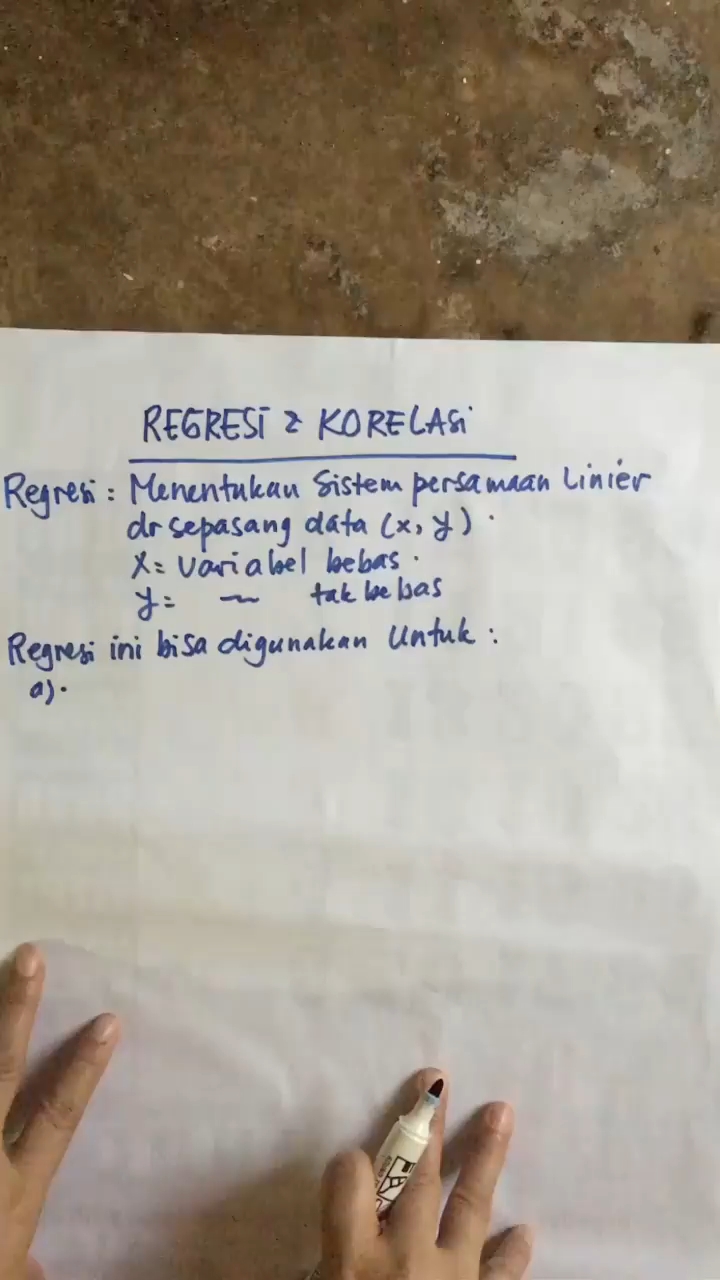 REGRESI & KORELASI
Regresi : Menentukan Sistem persamaan Linier
dr sepasang data (x, y) .
X = Variabel bebas .
y = ~ tak bebas
Regresi ini bisa digunakan Untuk :
a).